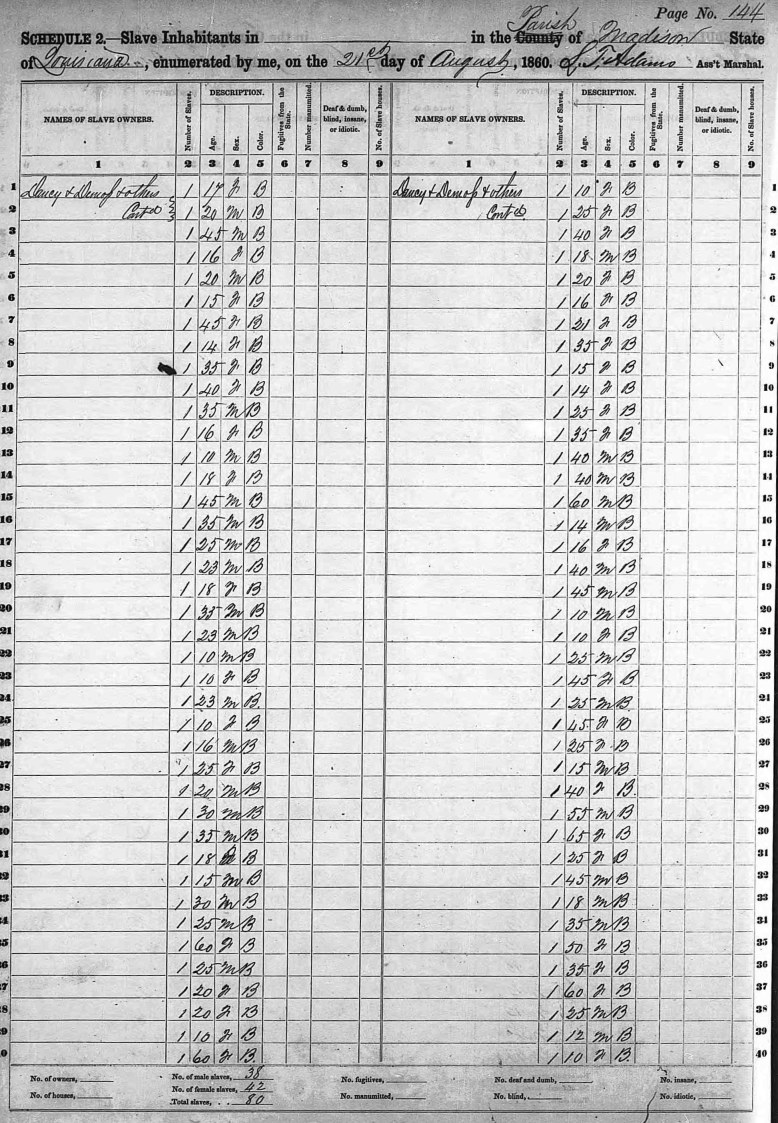 Page No. 144
SCHEDULE 2.—Slave Inhabitants in in the County Parish of Madison State
of Louisiana, enumerated by me, on the 21st day of August, 1860. L. T. Adams Ass't Marshal.
NAMES OF SLAVE OWNERS. Number of Slaves. DESCRIPTION. Age. Sex. Color. Fugitives from the State. Number manumitted. Deaf & dumb, blind, insane, or idiotic. No. of Slave houses. NAMES OF SLAVE OWNERS. Number of Slaves. DESCRIPTION. Age. Sex. Color. Fugitives from the State. Number manumitted. Deaf & dumb, blind, insane, or idiotic. No. of Slave houses.
1 2 3 4 5 6 7 8 9 1 2 3 4 5 6 7 8 9
1 Dancy & Demoss & others 1 17 F B Dancy & Demoss & others 1 10 F B 1
2 Cont'd 1 20 M B Cont'd 1 25 F B 2
3 1 45 M B 1 40 F B 3
4 1 16 F B 1 18 M B 4
5 1 20 M B 1 20 F B 5
6 1 15 F B 1 16 F B 6
7 1 45 F B 1 21 F B 7
8 1 14 F B 1 35 F B 8
9 1 35 F B 1 15 F B 9
10 1 40 F B 1 14 F B 10
11 1 35 M B 1 25 F B 11
12 1 16 F B 1 35 F B 12
13 1 10 M B 1 40 M B 13
14 1 18 F B 1 40 M B 14
15 1 45 M B 1 60 M B 15
16 1 35 M B 1 14 M B 16
17 1 25 M B 1 16 F B 17
18 1 23 M B 1 40 M B 18
19 1 18 F B 1 45 M B 19
20 1 35 M B 1 10 M B 20
21 1 23 M B 1 10 F B 21
22 1 10 M B 1 25 M B 22
23 1 10 F B 1 45 F B 23
24 1 23 M B 1 25 M B 24
25 1 10 F B 1 45 F B 25
26 1 16 M B 1 25 F B 26
27 1 25 F B 1 15 M B 27
28 1 20 M B 1 40 F B 28
29 1 30 M B 1 55 M B 29
30 1 35 M B 1 65 F B 30
31 1 18 B 1 25 F B 31
32 1 15 M B 1 45 M B 32
33 1 30 M B 1 18 M B 33
34 1 25 M B 1 35 M B 34
35 1 60 F B 1 50 F B 35
36 1 25 M B 1 35 F B 36
37 1 20 F B 1 60 F B 37
38 1 20 F B 1 25 M B 38
39 1 10 F B 1 12 M B 39
40 1 60 F B 1 10 F B 40
No. of owners, No. of male slaves, 38 No. fugitives, No. deaf and dumb, No. insane,
No. of houses, No. of female slaves, 42 No. manumitted, No. blind, No. idiotic,
Total slaves, 80